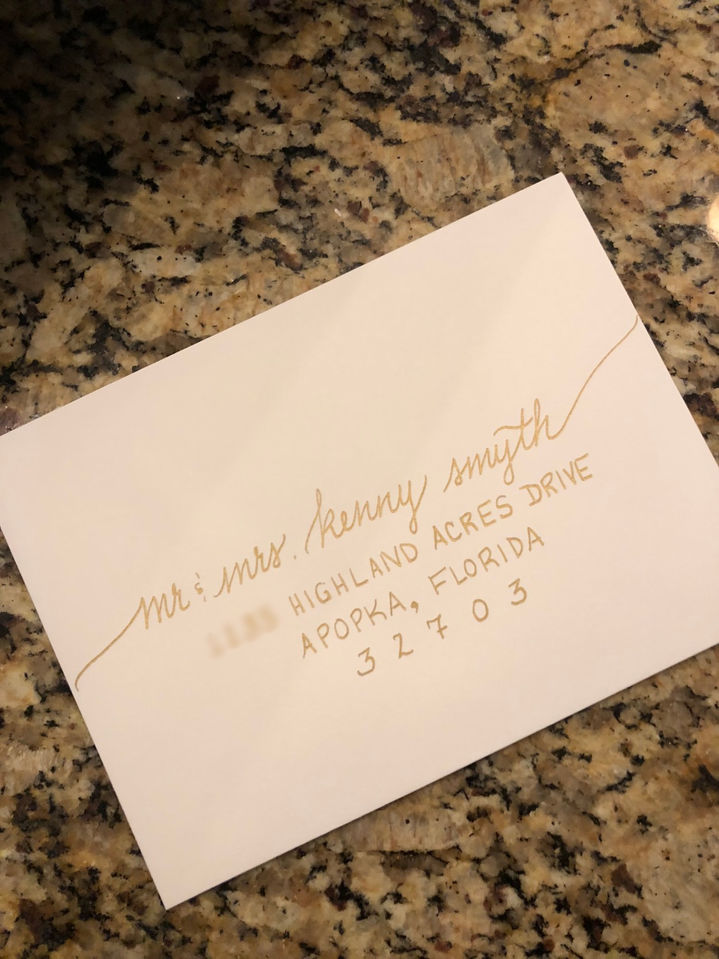 mr & mrs. kenny smyth
HIGHLAND ACRES DRIVE
APOPKA, FLORIDA
32703